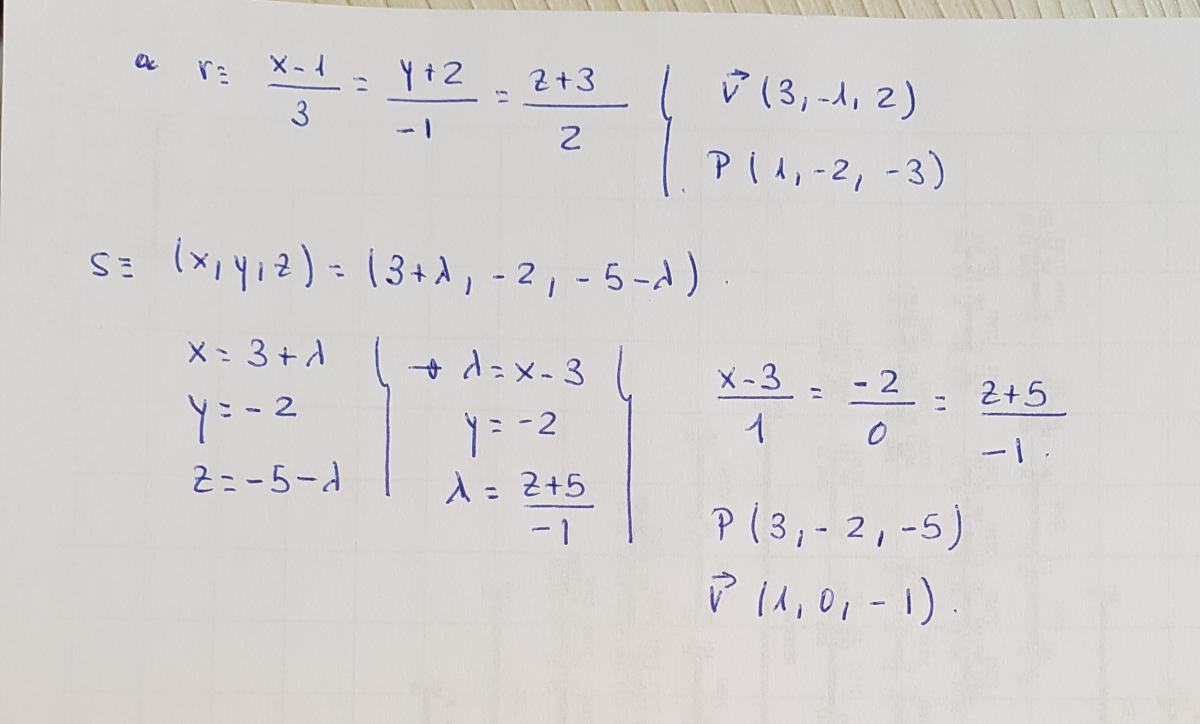 a r≡ x-1/3 = y+2/-1 = z+3/2 { v⃗ (3, -1, 2)
P (1, -2, -3)
S≡ (x, y, z) = (3+λ, -2, -5-λ).
x = 3+λ
y = -2
z = -5-λ
→ λ = x-3
y = -2
λ = z+5/-1
x-3/1 = -2/0 = z+5/-1.
P (3, -2, -5)
v⃗ (1, 0, -1).